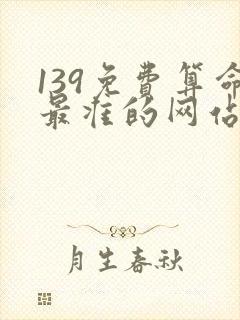 139免费算命
最准的网站
月生春秋